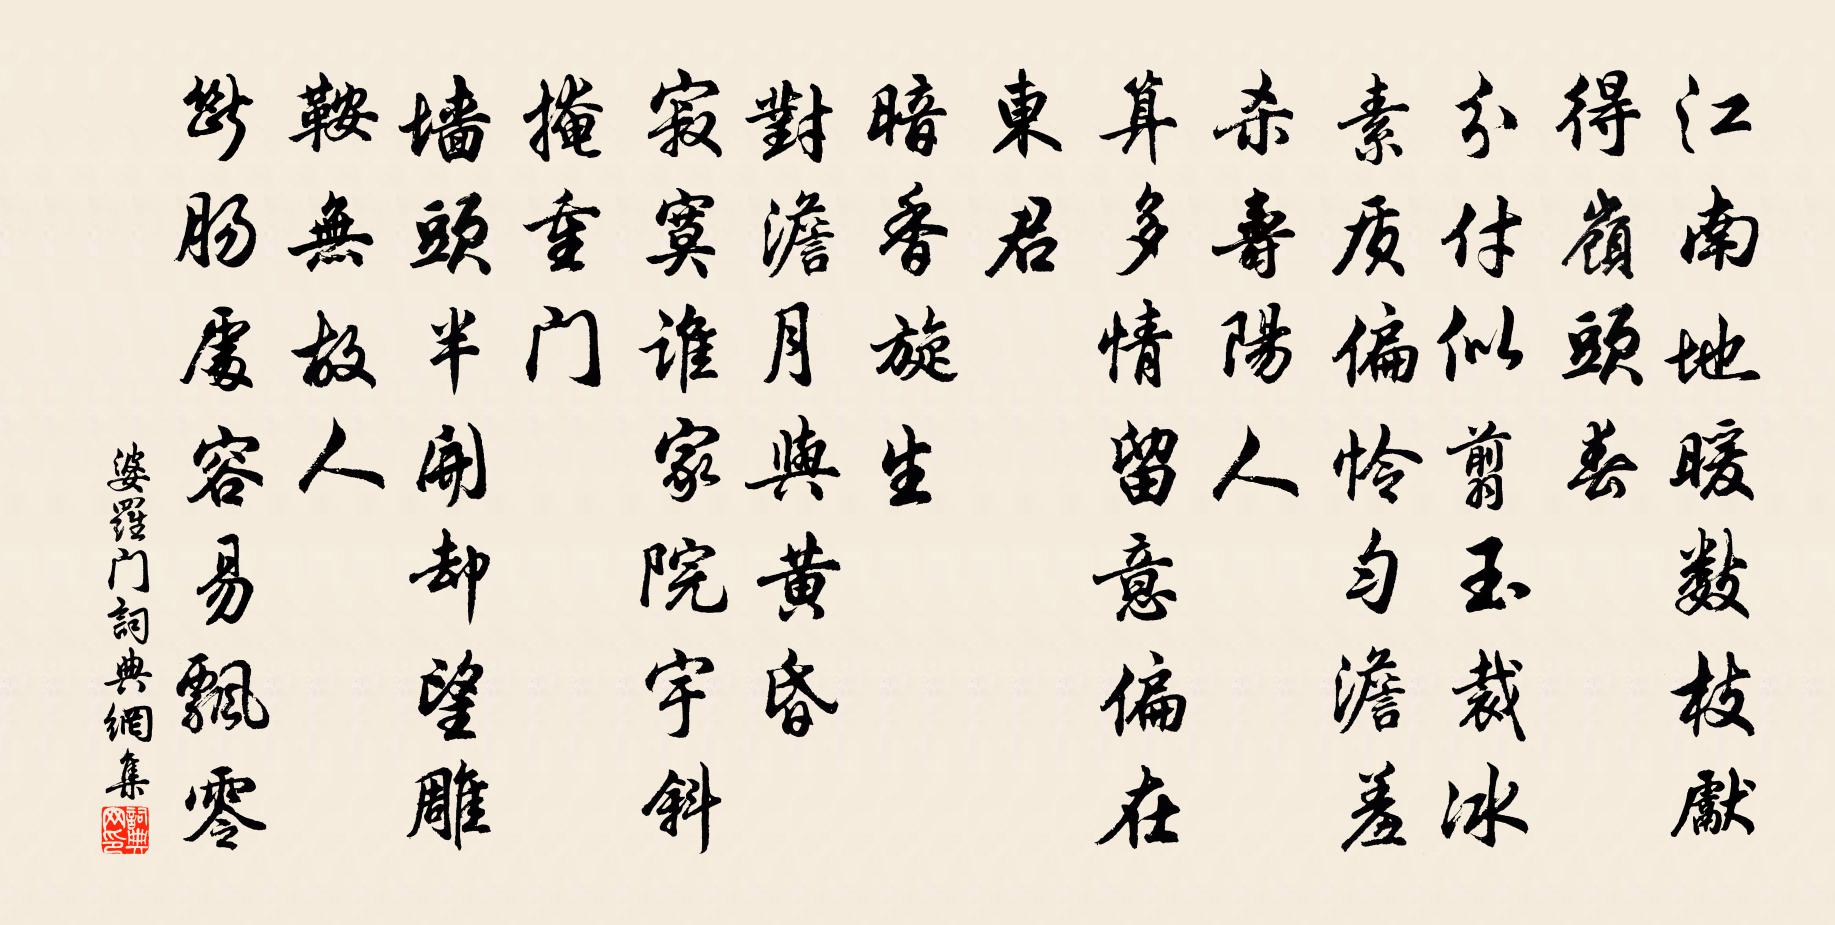 江南地暖数枝獻
得嶺頭春
分付似剪玉裁冰
素质偏怜匀澹羞
杀壽陽人
算多情留意偏在
東君
暗香旋生
對澹月與黄昏
寂寞谁家院宇斜
掩重门
墙頭半開却望雕
鞍無故人
斷腸處容易飄零
婆羅门詞典網集
詞典网印